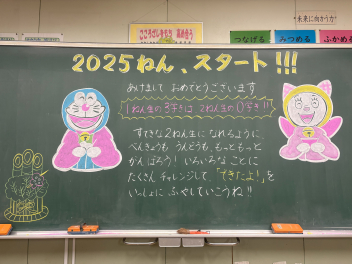 こころざしをもち 高め合う
未来に向かう力
つなげる みつめる ふかめる
2025ねん、スタート!!!
あけまして おめでとうございます
1ねん生の3学きは 2ねん生の0学き!!
すてきな2ねん生に なれるように
べんきょうも うんどうも、もっともっと
がんばろう! いろいろな ことに
たくさん チャレンジして、「できたよ!」を
いっしょに ふやしていこうね!!